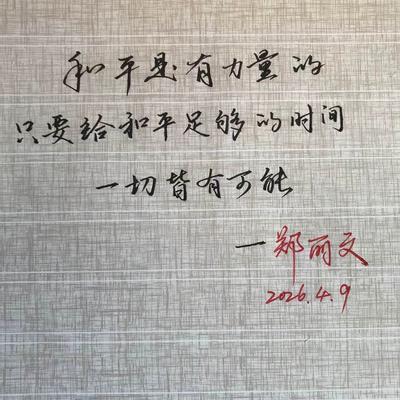 和平是有力量的
只要给和平足够的时间
一切皆有可能
一郑丽文
2026.4.9